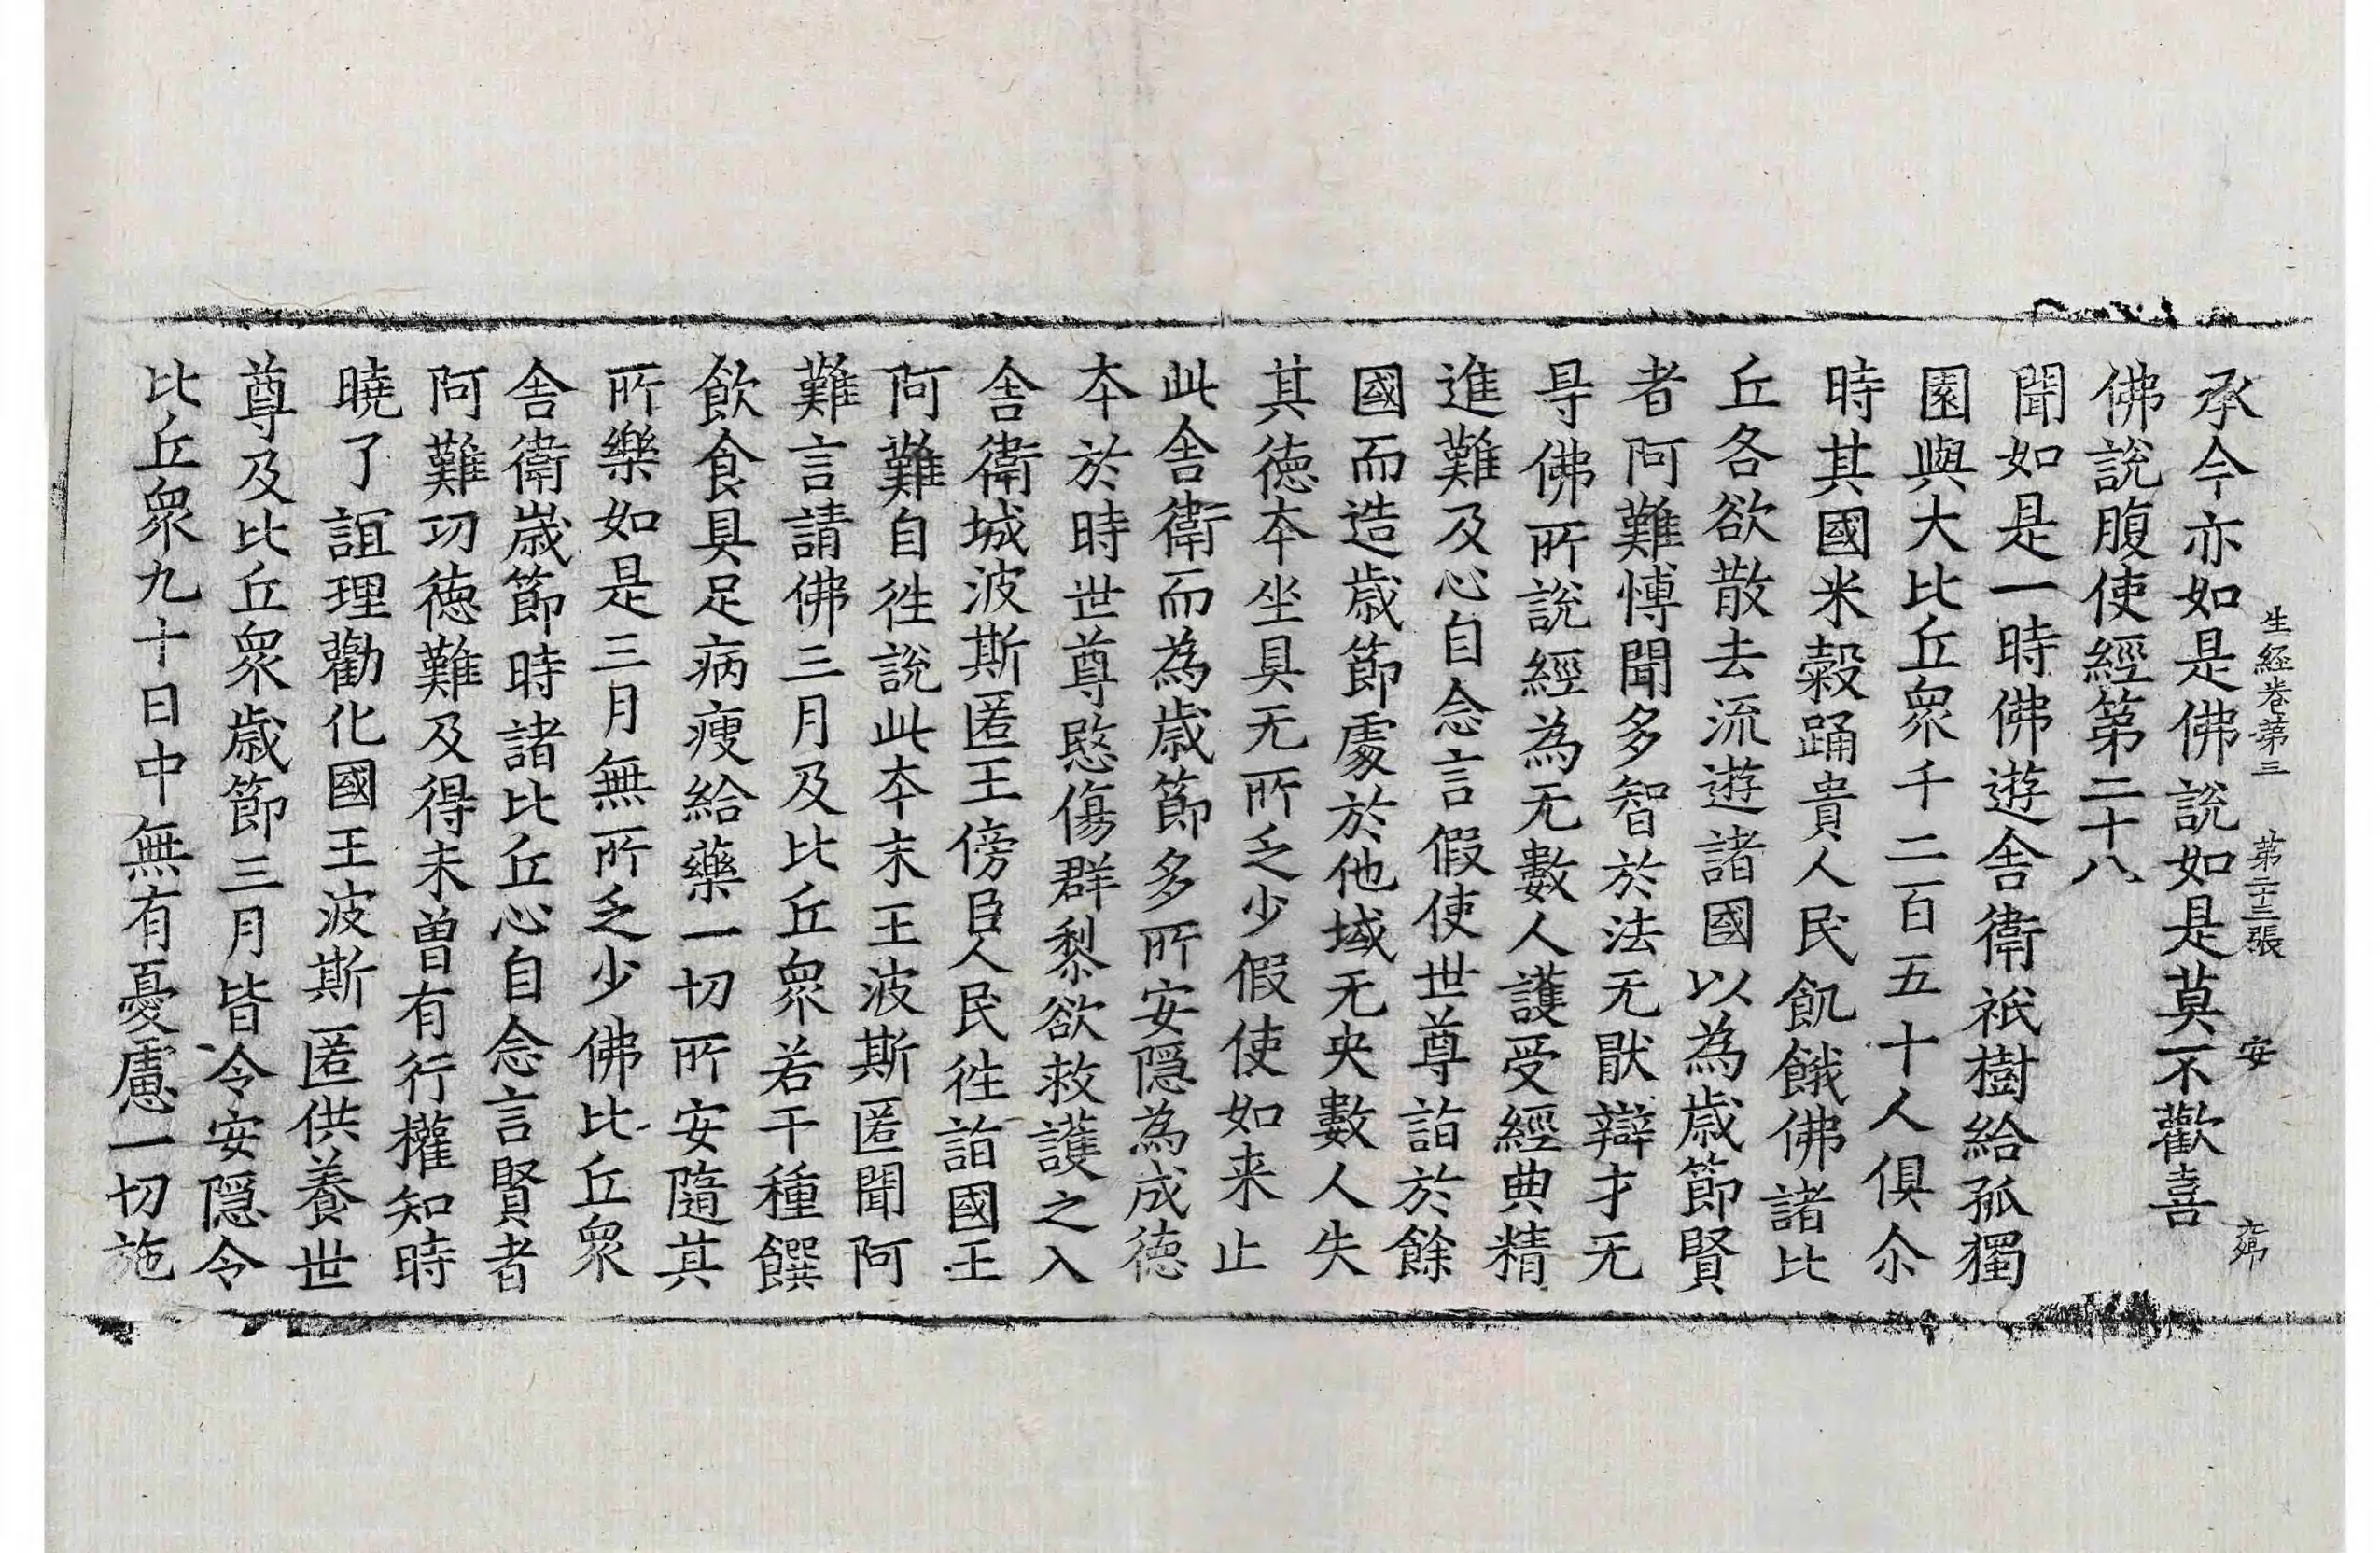 生経卷第三 第二十三張 安
承今亦如是佛說如是莫不歡喜
佛說腹使經第二十八
聞如是一時佛遊舎衛祇樹給孤獨
園與大比丘衆千二百五十人俱尒
時其國米糓踊貴人民飢餓佛諸比
丘各欲散去流遊諸國以為歳節賢
者阿難愽聞多智於法无猒辯才无
㝵佛所說經為无數人護受經典精
進難及心自念言假使世尊詣於餘
國而造歳節處於他域无央數人失
其徳夲坐具无所乏少假使如来止
此舎衛而為歳節多所安隠為成徳
夲於時世尊愍傷群黎欲救護之入
舎衛城波斯匿王傍臣人民徃詣國王
阿難自徃說此夲末王波斯匿聞阿
難言請佛三月及比丘衆若干種饌
飲食具足病瘦給藥一切所安隨其
所樂如是三月無所乏少佛比丘衆
舎衛歳節時諸比丘心自念言賢者
阿難功徳難及得未曽有行權知時
曉了誼理勸化國王波斯匿供養世
尊及比丘衆歳節三月皆令安隠令
比丘衆九十日中無有憂慮一切施